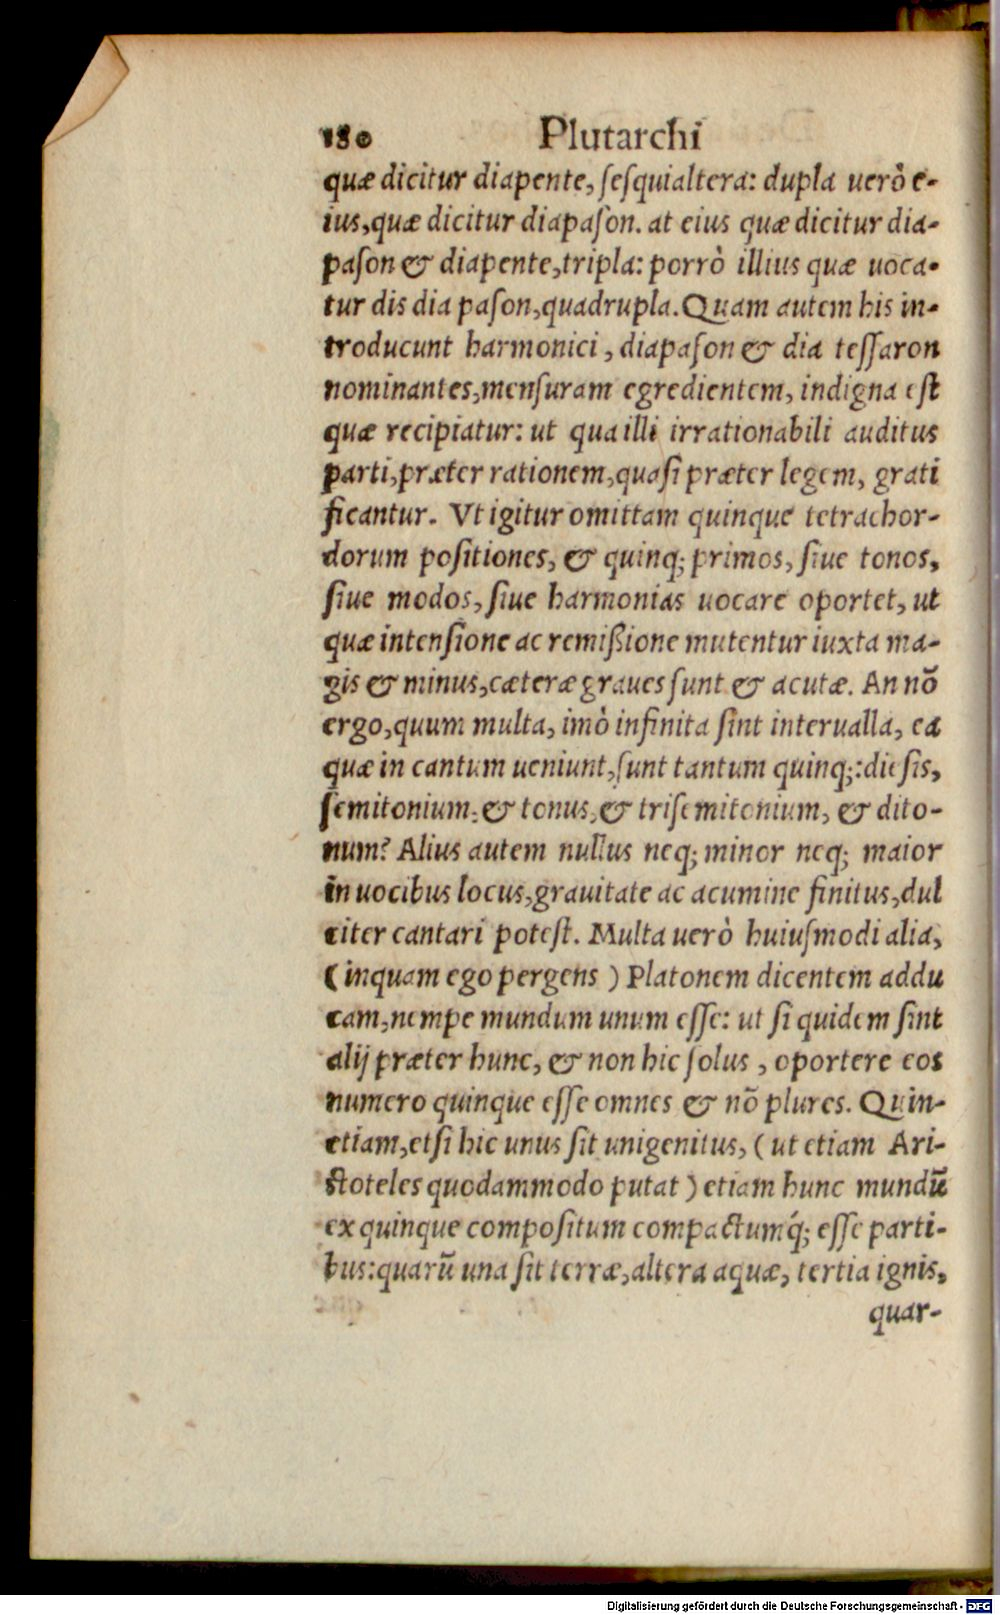 180 Plutarchi
quæ dicitur diapente, ſeſquialtera: dupla uerò e-
ius, quæ dicitur diapaſon. at eius quæ dicitur dia-
paſon & diapente, tripla: porrò illius quæ uoca-
tur dis dia paſon, quadrupla. Quam autem his in-
troducunt harmonici, diapaſon & dia teſſaron
nominantes, menſuram egredientem, indigna eſt
quæ recipiatur: ut qua illi irrationabili auditus
parti, præter rationem, quaſi præter legem, grati
ficantur. Vt igitur omittam quinque tetrachor-
dorum poſitiones, & quinq; primos, ſiue tonos,
ſiue modos, ſiue harmonias uocare oportet, ut
quæ intenſione ac remißione mutentur iuxta ma-
gis & minus, cæteræ graues ſunt & acutæ. An nõ
ergo, quum multa, imò infinita ſint interualla, ea
quæ in cantum ueniunt, ſunt tantum quinq;: dieſis,
ſemitonium, & tonus, & triſemitonium, & dito-
num? Alius autem nullus neq; minor neq; maior
in uocibus locus, grauitate ac acumine finitus, dul
citer cantari poteſt. Multa uerò huiuſmodi alia,
(inquam ego pergens) Platonem dicentem addu
cam, nempe mundum unum eſſe: ut ſi quidem ſint
alij præter hunc, & non hic ſolus, oportere eos
numero quinque eſſe omnes & nõ plures. Quin-
etiam, etſi hic unus ſit unigenitus, (ut etiam Ari-
ſtoteles quodammodo putat) etiam hunc mundũ
ex quinque compoſitum compactumq́; eſſe parti-
bus: quarũ una ſit terræ, altera aquæ, tertia ignis,
quar-
Digitalisierung gefördert durch die Deutsche Forschungsgemeinschaft - DFG